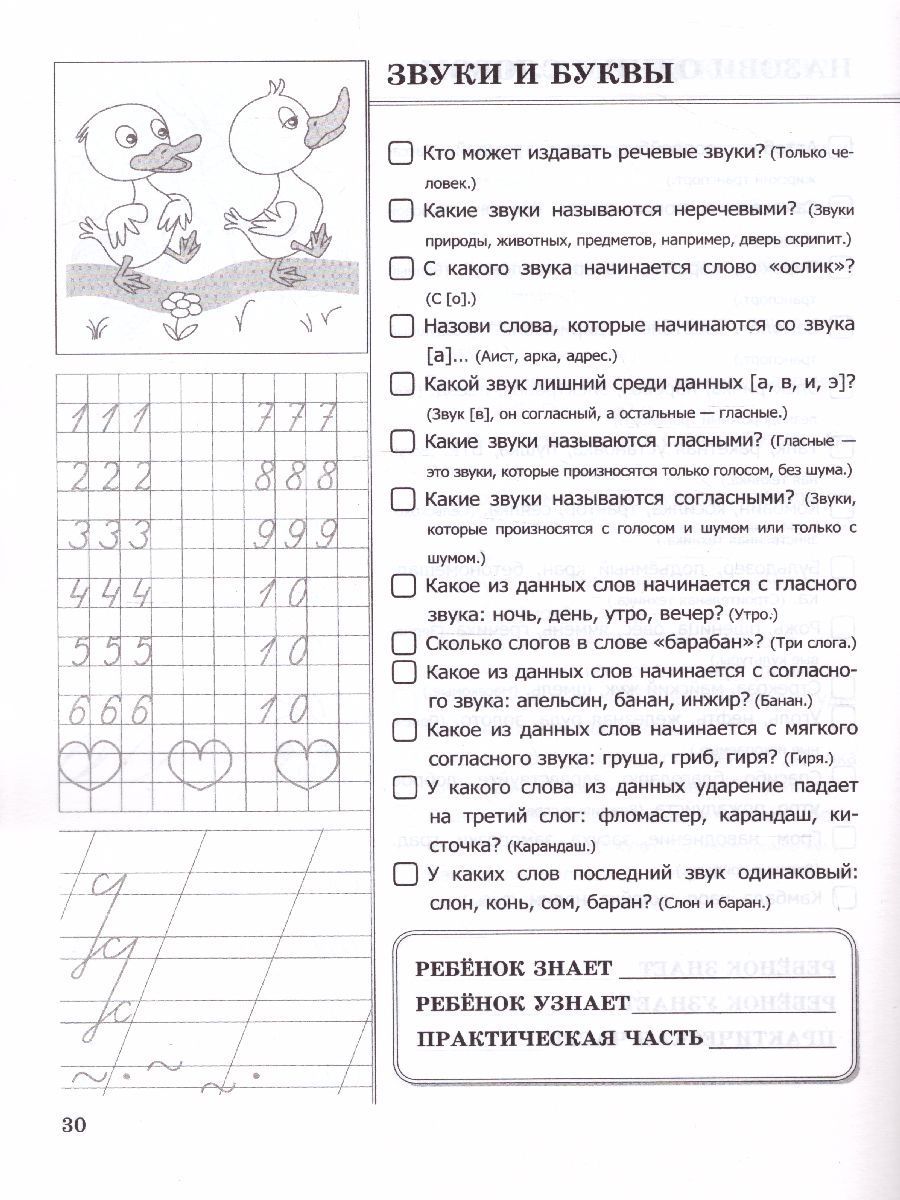 ЗВУКИ И БУКВЫ
Кто может издавать речевые звуки? (Только че-
ловек.)
Какие звуки называются неречевыми? (Звуки
природы, животных, предметов, например, дверь скрипит.)
С какого звука начинается слово «ослик»?
(С [о].)
Назови слова, которые начинаются со звука
[а]... (Аист, арка, адрес.)
Какой звук лишний среди данных [а, в, и, э]?
(Звук [в], он согласный, а остальные — гласные.)
Какие звуки называются гласными? (Гласные —
это звуки, которые произносятся только голосом, без шума.)
Какие звуки называются согласными? (Звуки,
которые произносятся с голосом и шумом или только с
шумом.)
Какое из данных слов начинается с гласного
звука: ночь, день, утро, вечер? (Утро.)
Сколько слогов в слове «барабан»? (Три слога.)
Какое из данных слов начинается с согласно-
го звука: апельсин, банан, инжир? (Банан.)
Какое из данных слов начинается с мягкого
согласного звука: груша, гриб, гиря? (Гиря.)
У какого слова из данных ударение падает
на третий слог: фломастер, карандаш, ки-
сточка? (Карандаш.)
У каких слов последний звук одинаковый:
слон, конь, сом, баран? (Слон и баран.)
РЕБЁНОК ЗНАЕТ
РЕБЁНОК УЗНАЕТ
ПРАКТИЧЕСКАЯ ЧАСТЬ
1 1 1 7 7 7
2 2 2 8 8 8
3 3 3 9 9 9
4 4 4 1 0
5 5 5 1 0
6 6 6 1 0
30